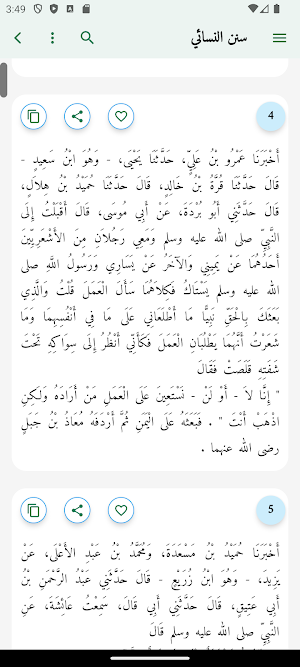 3:49
سنن النسائي
4
أَخْبَرَنَا عَمْرُو بْنُ عَلِيٍّ، حَدَّثَنَا يَحْيَى، - وَهُوَ ابْنُ سَعِيدٍ -
قَالَ حَدَّثَنَا قُرَّةُ بْنُ خَالِدٍ، قَالَ حَدَّثَنَا حُمَيْدُ بْنُ هِلاَلٍ،
قَالَ حَدَّثَنِي أَبُو بُرْدَةَ، عَنْ أَبِي مُوسَى، قَالَ أَقْبَلْتُ إِلَى
النَّبِيِّ صلى الله عليه وسلم وَمَعِي رَجُلاَنِ مِنَ الأَشْعَرِيِّينَ
أَحَدُهُمَا عَنْ يَمِينِي وَالآخَرُ عَنْ يَسَارِي وَرَسُولُ اللَّهِ صلى
الله عليه وسلم يَسْتَاكُ فَكِلاَهُمَا سَأَلَ الْعَمَلَ قُلْتُ وَالَّذِي
بَعَثَكَ بِالْحَقِّ نَبِيًّا مَا أَطْلَعَانِي عَلَى مَا فِي أَنْفُسِهِمَا وَمَا
شَعَرْتُ أَنَّهُمَا يَطْلُبَانِ الْعَمَلَ فَكَأَنِّي أَنْظُرُ إِلَى سِوَاكِهِ تَحْتَ
شَفَتِهِ قَلَصَتْ فَقَالَ
" إِنَّا لاَ - أَوْ لَنْ - نَسْتَعِينَ عَلَى الْعَمَلِ مَنْ أَرَادَهُ وَلَكِنِ
اذْهَبْ أَنْتَ " . فَبَعَثَهُ عَلَى الْيَمَنِ ثُمَّ أَرْدَفَهُ مُعَاذُ بْنُ جَبَلٍ
رضى الله عنهما .
5
أَخْبَرَنَا حُمَيْدُ بْنُ مَسْعَدَةَ، وَمُحَمَّدُ بْنُ عَبْدِ الأَعْلَى، عَنْ
يَزِيدَ، - وَهُوَ ابْنُ زُرَيْعٍ - قَالَ حَدَّثَنِي عَبْدُ الرَّحْمَنِ بْنُ
أَبِي عَتِيقٍ، قَالَ حَدَّثَنِي أَبِي قَالَ، سَمِعْتُ عَائِشَةَ، عَنِ
النَّبِيِّ صلى الله عليه وسلم قَالَ